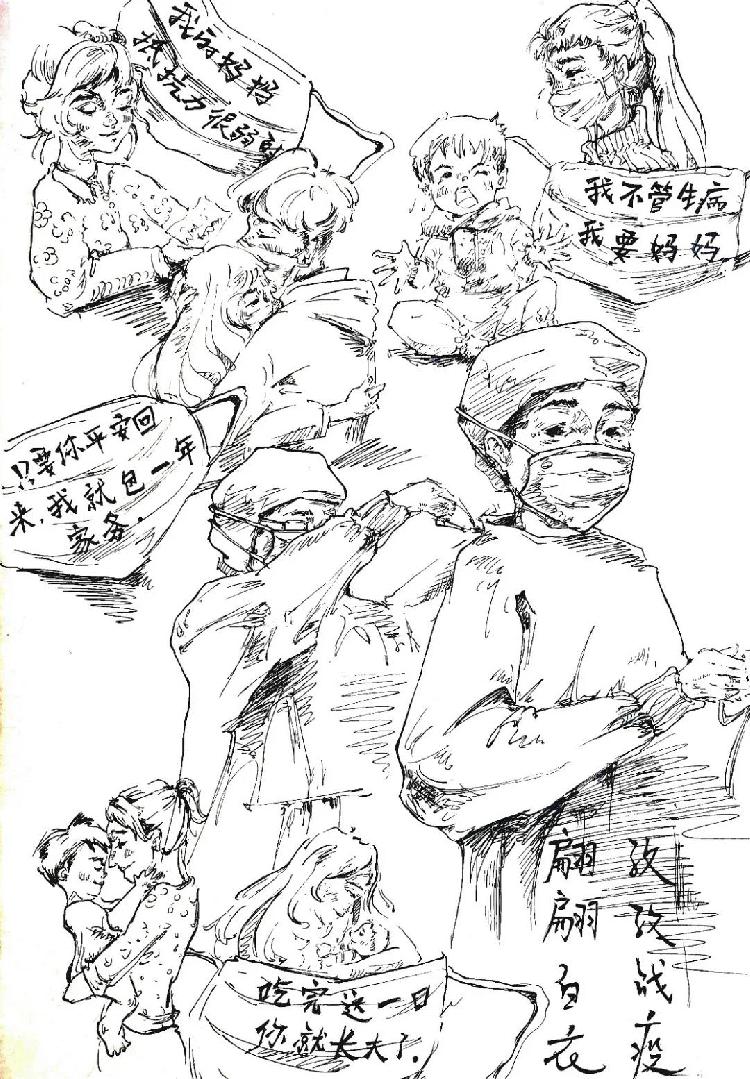 我的妈妈
抵抗力很弱的
我不管生病
我要妈妈
只要你平安回
来,我就包一年
家务.
孜孜战疫
翩翩白衣
吃完这一口
你就长大了.